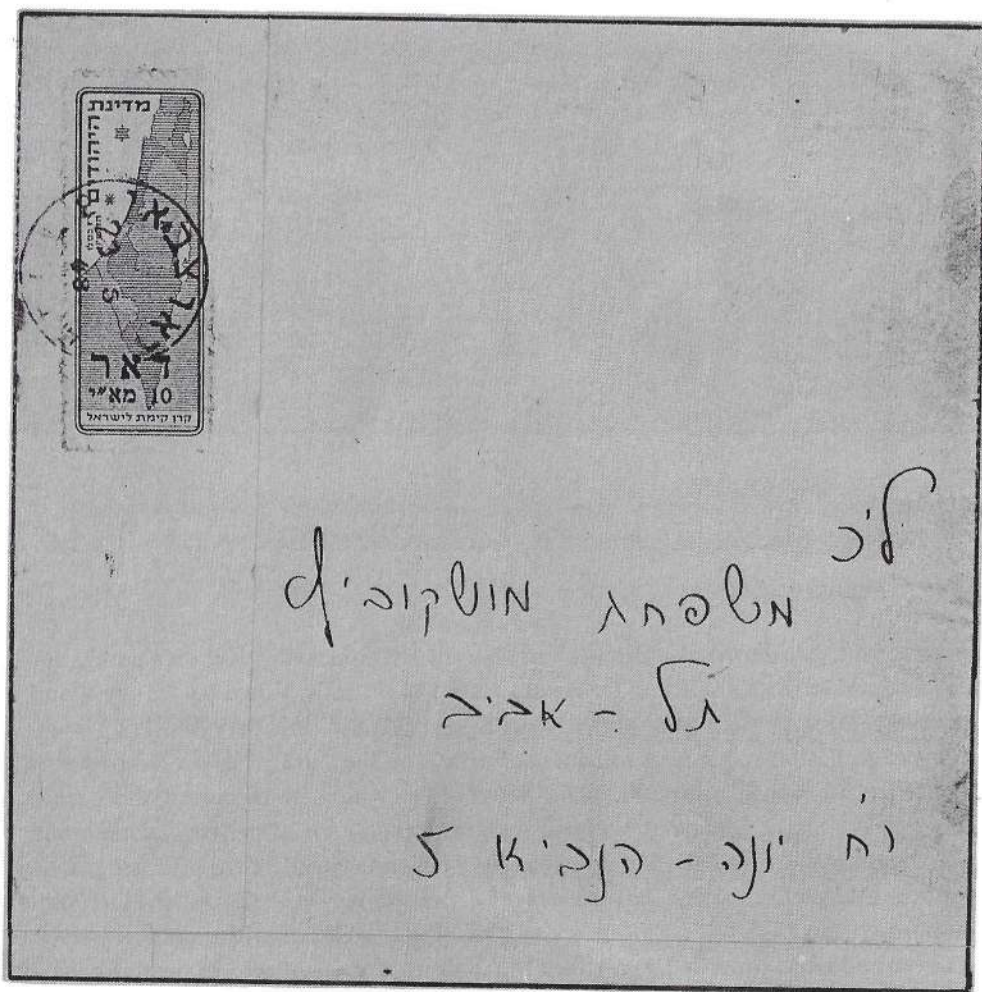 מדינת
היהודים
דאר
10 מא"י
קרן קימת לישראל
23 5
48
לכ'
משפחת מושקוביץ
תל - אביב
רח' יונה - הנביא 5